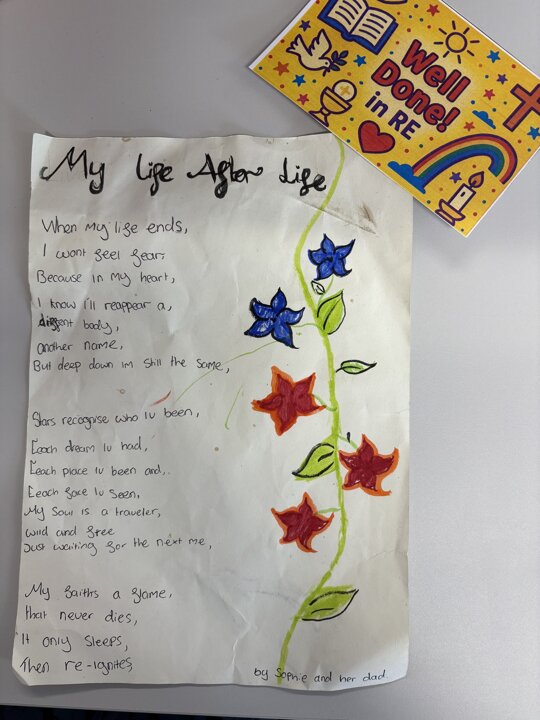 Well
Done!
in RE
My Life After Life
When My life ends,
I wont feel fear,
Because in my heart,
I know i'll reappear a,
diffent body,
another name,
But deep down im still the same,
Stars recognise who iv been,
Each dream iv had,
Eeach place iv been and,
Eeach face iv seen,
My Soul is a traveler,
wild and free
Just waiting for the next me,
My faiths a flame,
that never dies,
It only sleeps,
Then re-ignites,
by Sophie and her dad.